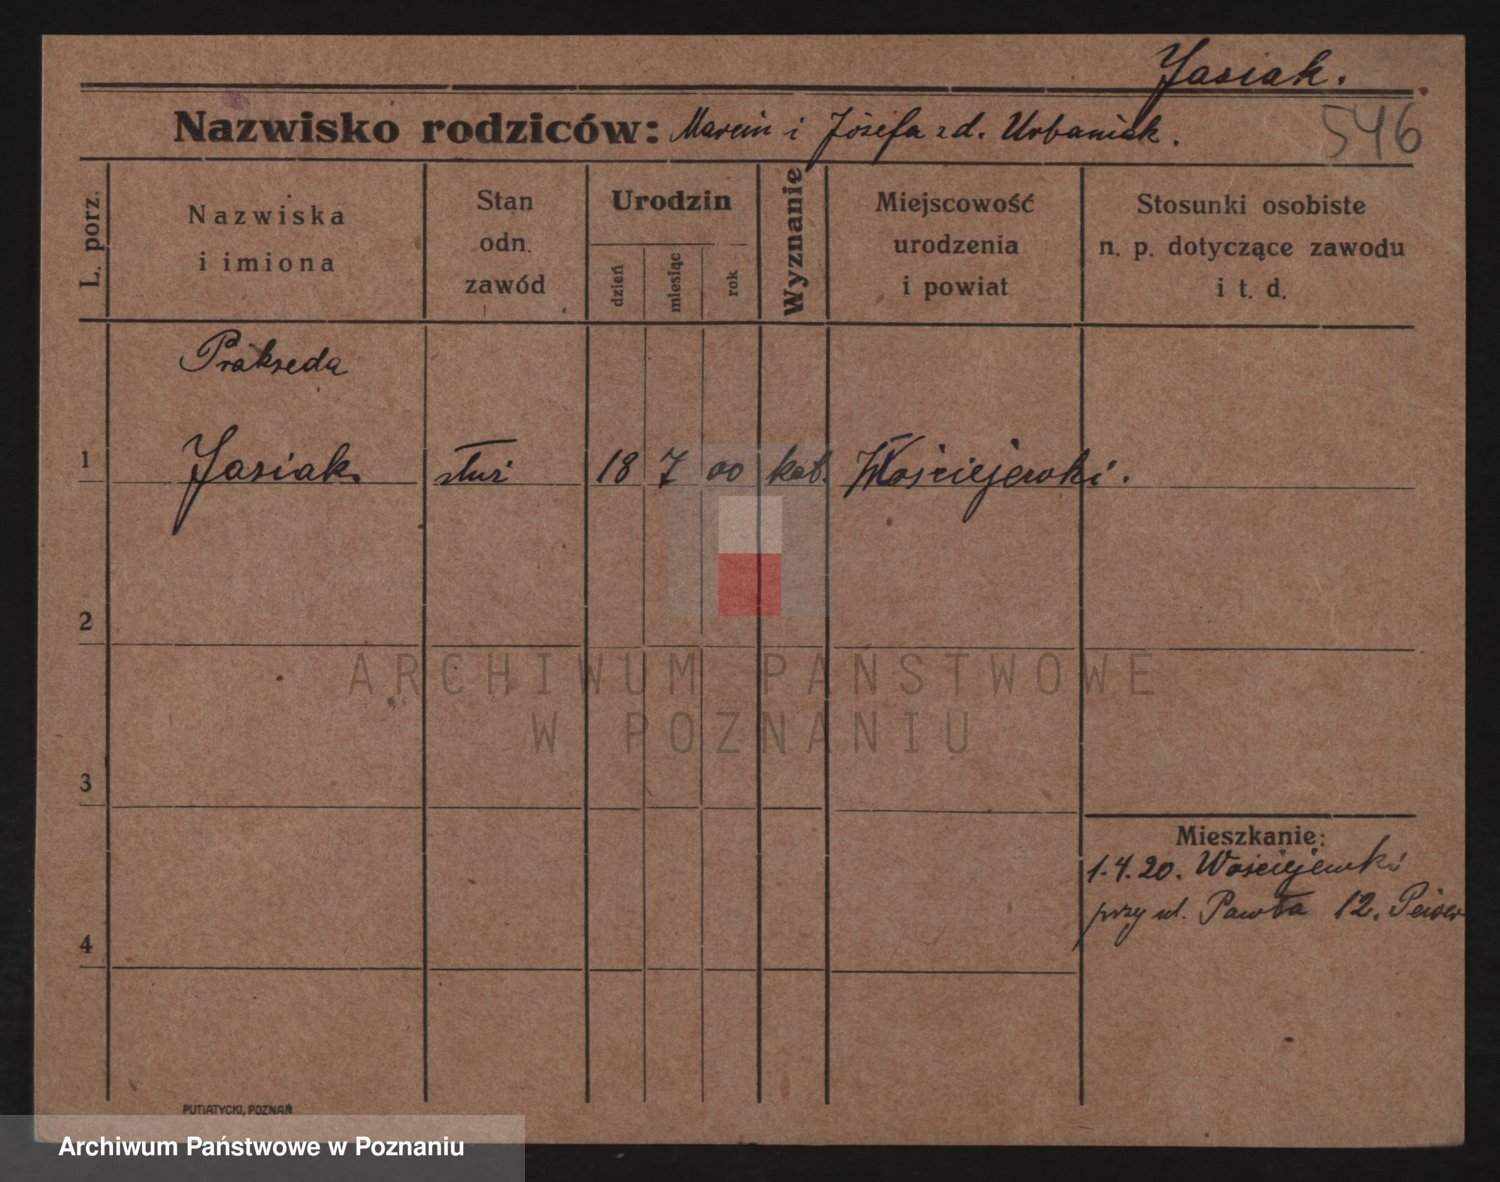 Jasiak.
Nazwisko rodziców: Marcin i Józefa zd. Urbaniak.
546
L. porz.
Nazwiska
i imiona
Stan
odn.
zawód
Urodzin
dzień
miesiąc
rok
Wyznanie
Miejscowość
urodzenia
i powiat
Stosunki osobiste
n. p. dotyczące zawodu
i t. d.
Prakseda
1 Jasiak służ 18 7 00 kat. Włościejewki.
2
ARCHIWUM PAŃSTWOWE
W POZNANIU
3
Mieszkanie:
1.4.20. Włościejewki
przy ul. Pawła 12. Peiser
4
PUTIATYCKI, POZNAŃ
Archiwum Państwowe w Poznaniu